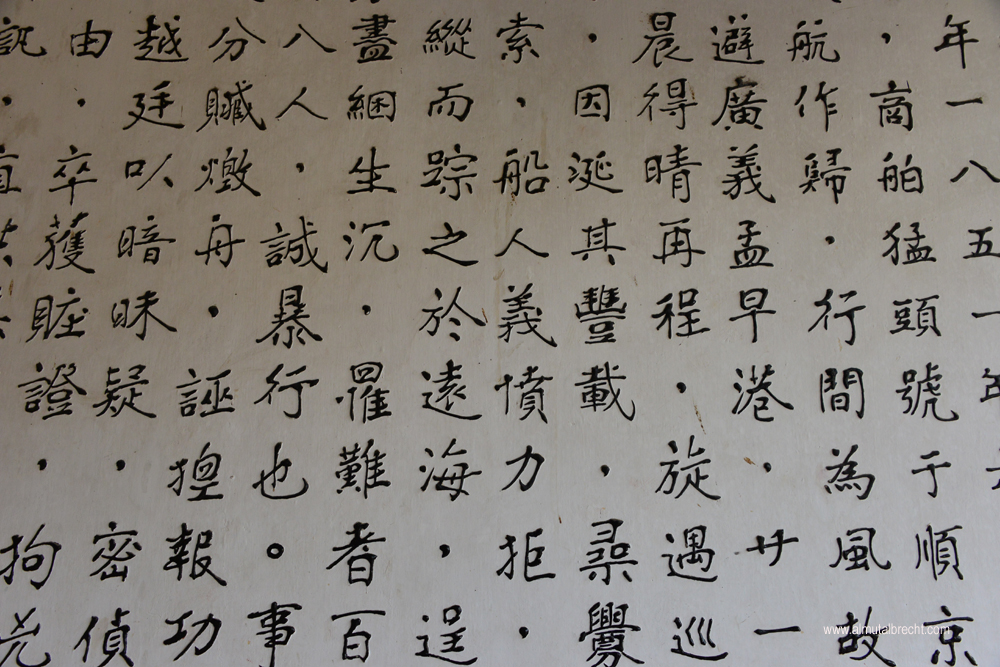 年一八五一年
，商舶猛頭號于順京
航作歸，行間為風故
避廣義孟早港，廿一
晨得晴再程，旋遇巡
，因涎其豐載，尋釁
索，船人義憤力拒，
縱而踪之於遠海，逞
盡綑生沉，罹難者百
八人，誠暴行也。事
分贓燬舟，誣揑報功
越廷以暗昧疑，密偵
由，卒獲賍證，拘兇
訊，直
www.almutalbrecht.com